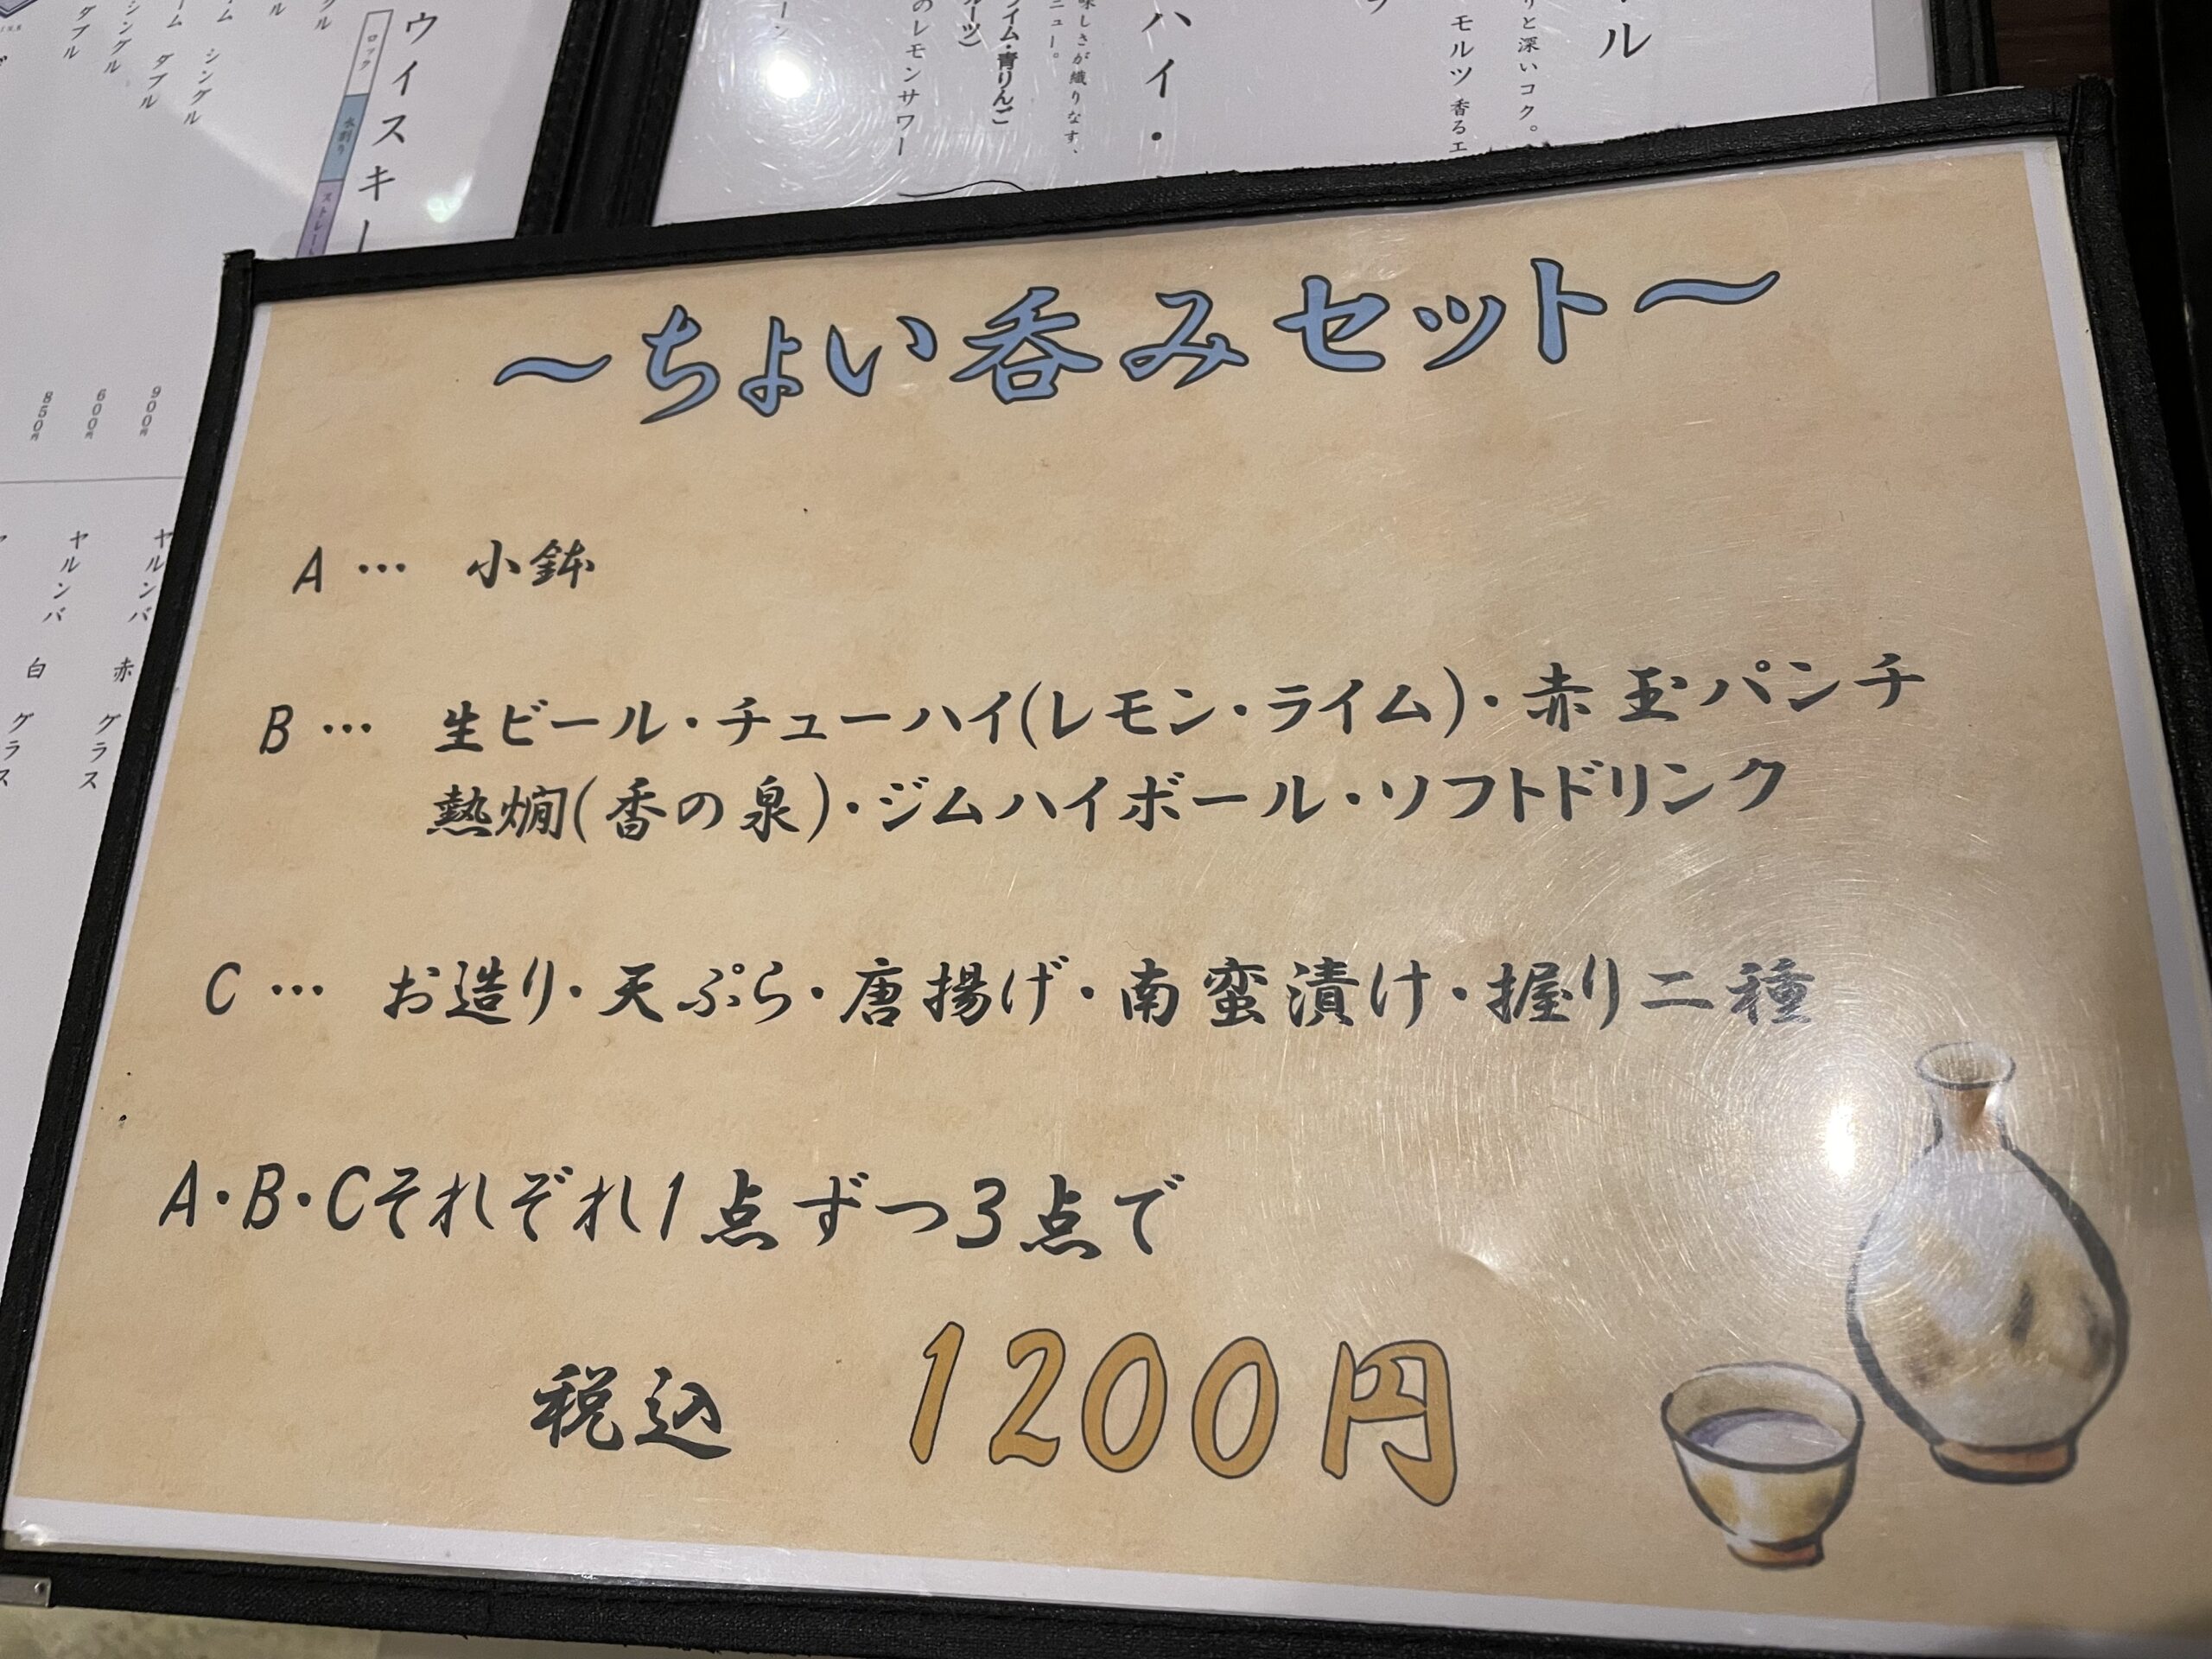 ～ちょい呑みセット～
A… 小鉢
B… 生ビール・チューハイ(レモン・ライム)・赤玉パンチ
熱燗(香の泉)・ジムハイボール・ソフトドリンク
C… お造り・天ぷら・唐揚げ・南蛮漬け・握り二種
A・B・Cそれぞれ1点ずつ3点で
税込 1200円
ル
りと深いコク。
モルツ 香るエ
ハイ・
味しさが織りなす、
ニュー。
イム・青りんご
ルーツ)
のレモンサワー
ウイスキー
ロック
水割り
シングル
ダブル
シングル
ダブル
900円
600円
850円
ヤルンバ 赤 グラス
ヤルンバ 白 グラス